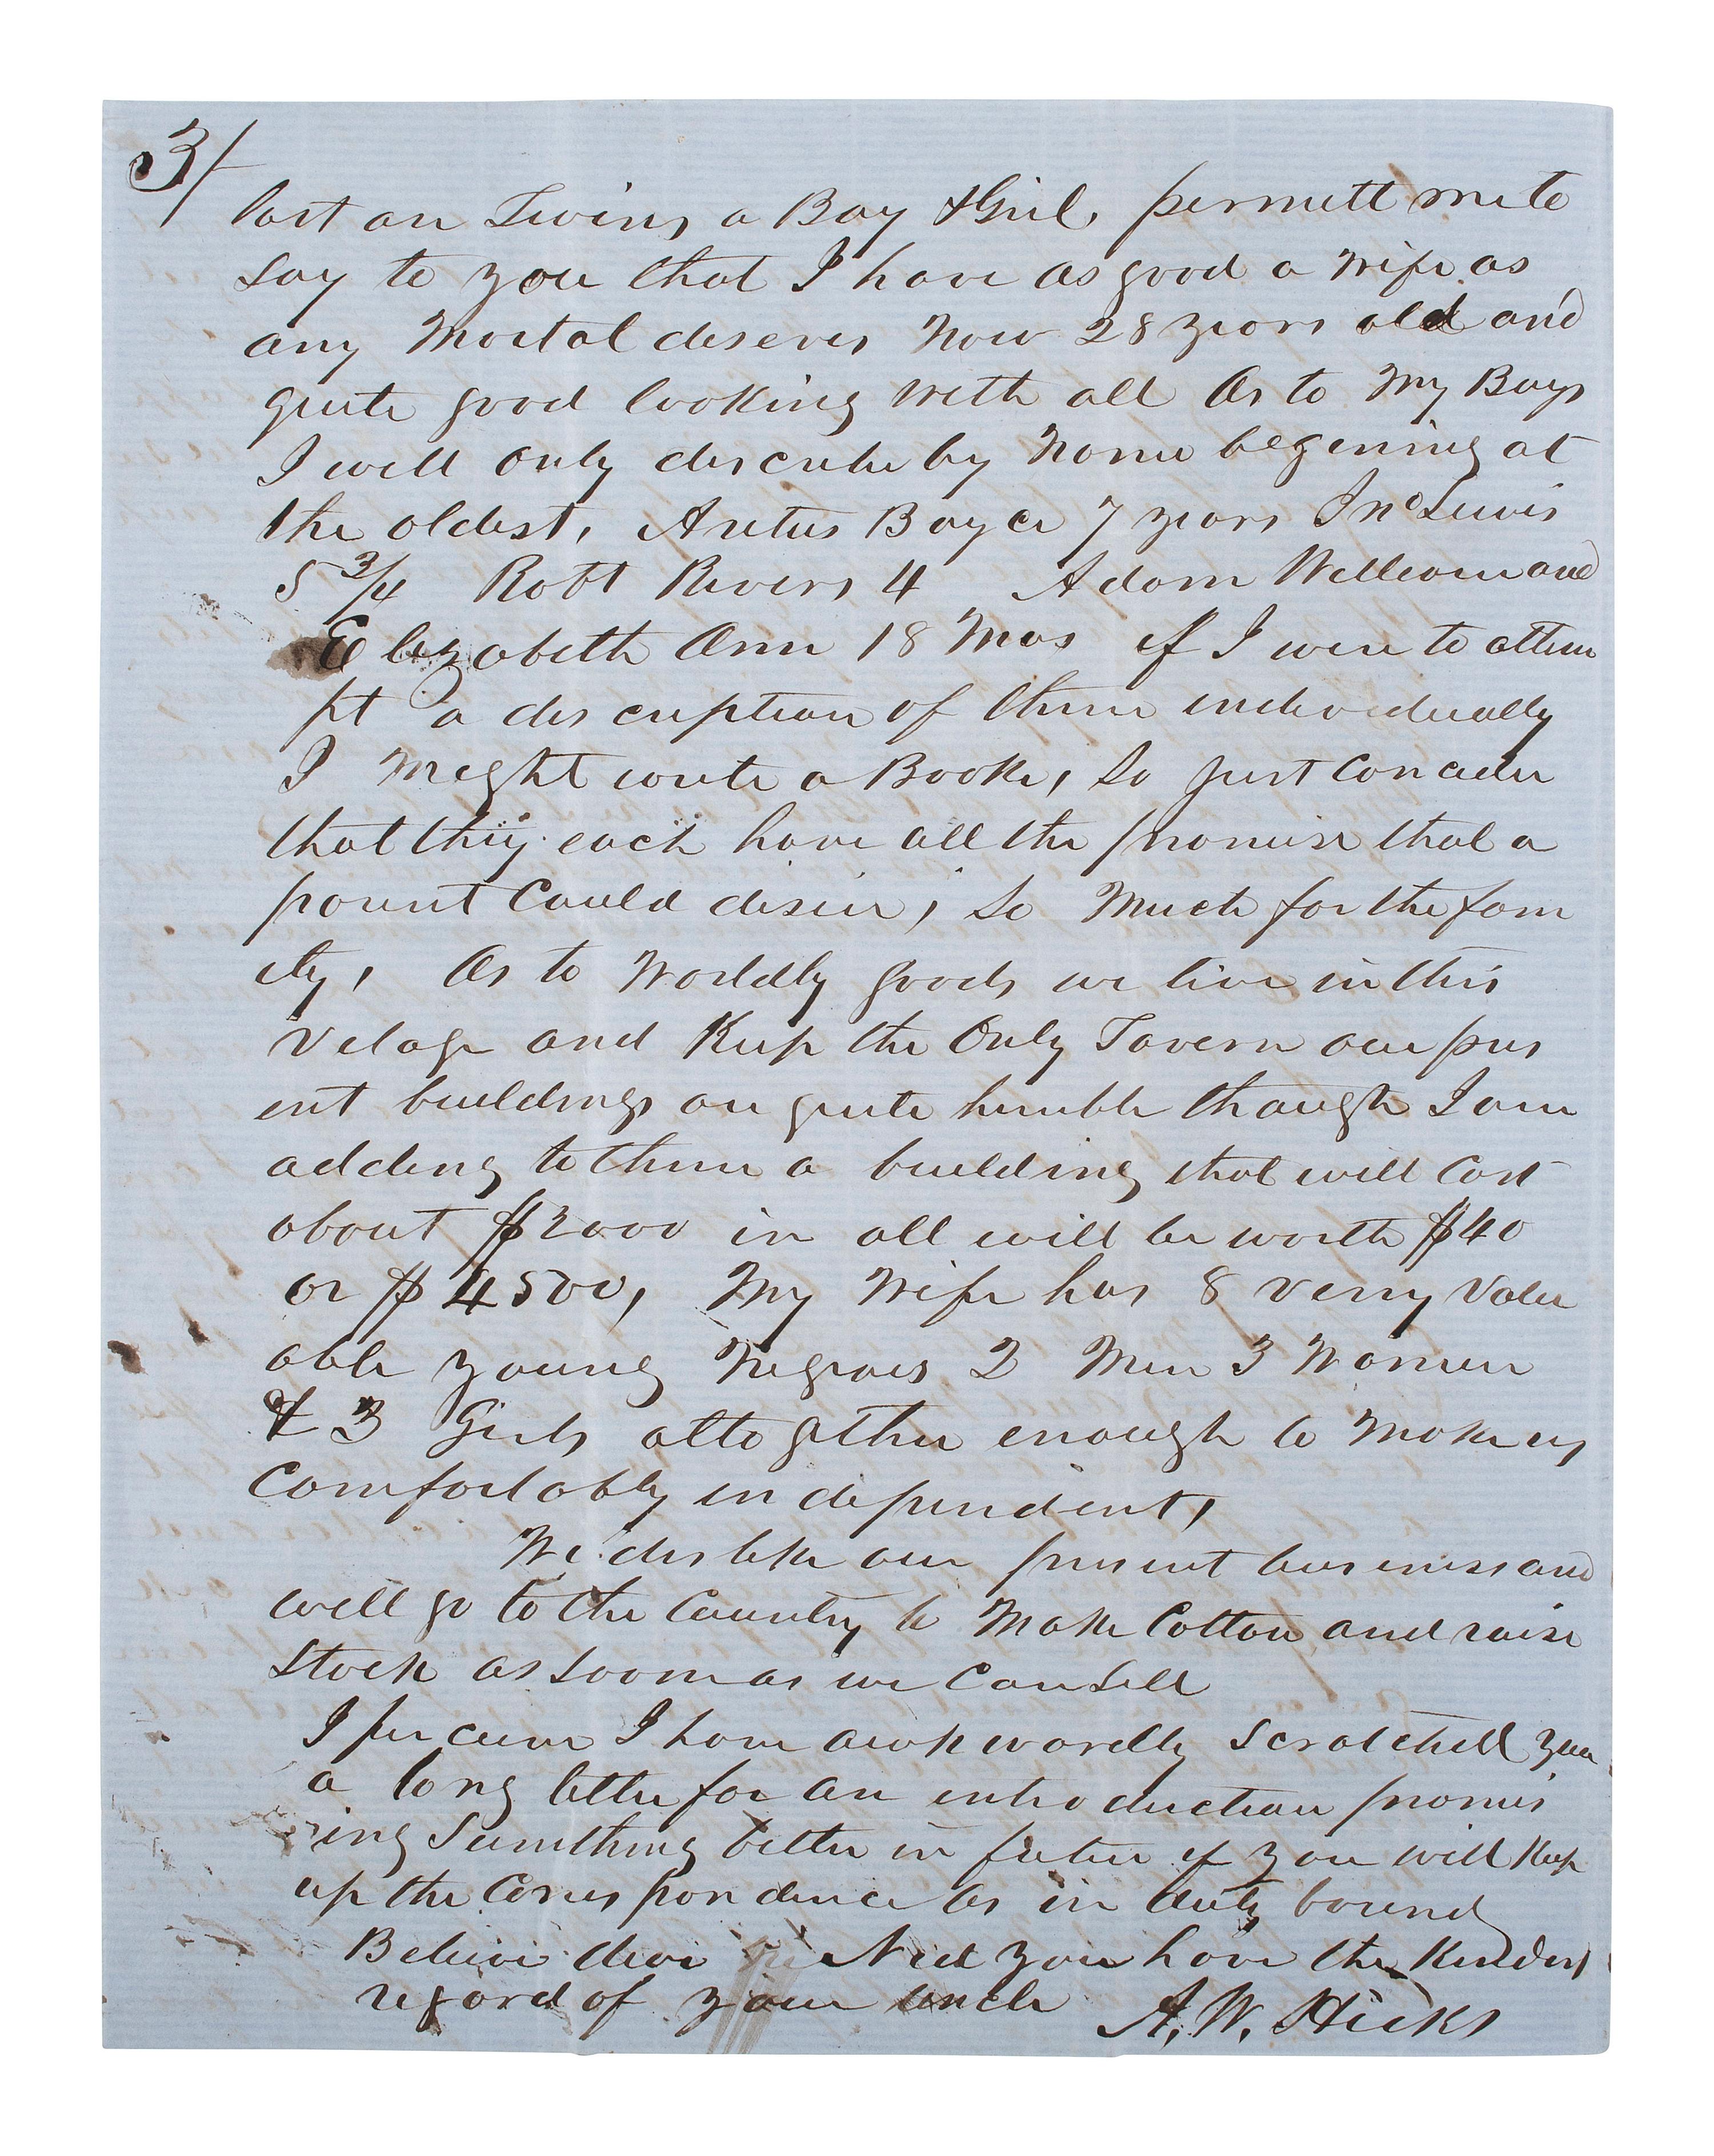 3/
last are Twins, a Boy & Girl, permitt me to
say to you that I have as good a wife as
any Mortal deserves Now 28 years old and
quite good looking with all As to My Boys
I will only discribe by Name begening at
the oldest, Aretus Boyce 7 years Jno Lewis
5 3/4 Robt Rivers 4 Adam William and
Elizabeth Ann 18 Mos if I were to attem
pt a discription of them individually
I might write a Book, So Just Concider
that they each have all the promise that a
parent Could desire, So Much for the fam
ily, As to Worldly goods we live in this
Vilage and Keep the Only Tavern our pres
ent buildings are quite humble though I am
adding to them a building that will Cost
about $2000 in all will be worth $40
or $4500, My Wife has 8 verry Valu
able young Negroes 2 Men 3 Women
& 3 Girls altogether enough to Make us
Comfortably independent,
We dislike our present business and
will go to the Country to Make Cotton and raise
Stock as soon as we Can Sell
I percieve I have awkwardly Scratched you
a long letter for an introduction promis
ing Sumthing better in future if you will Keep
up the Correspondence As in duty bound
Believe dear Ned you have the Kindest
regard of your uncle A. W. Hicks